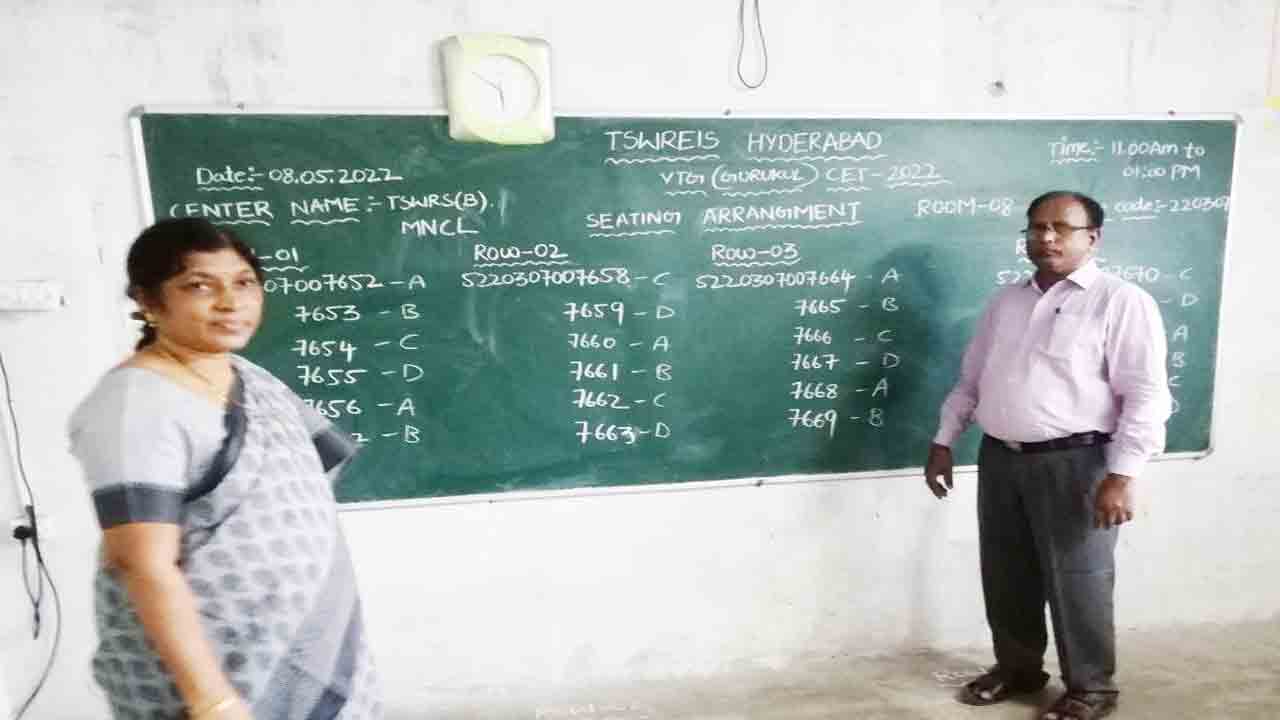 TSWREIS HYDERABAD
Time:- 11.00Am to 01:00 PM
Date:- 08.05.2022
VTG (GURUKUL) CET-2022
CENTER NAME:- TSWRS(B).
MNCL
SEATING ARRANGIMENT
ROOM-08 code:- 220307
-01 Row-02 Row-03
07007652 - A 5220307007658 - C 5220307007664 - A 7670 - C
7653 - B 7659 - D 7665 - B - D
7654 - C 7660 - A 7666 - C A
7655 - D 7661 - B 7667 - D B
7656 - A 7662 - C 7668 - A C
- B 7663 - D 7669 - B D